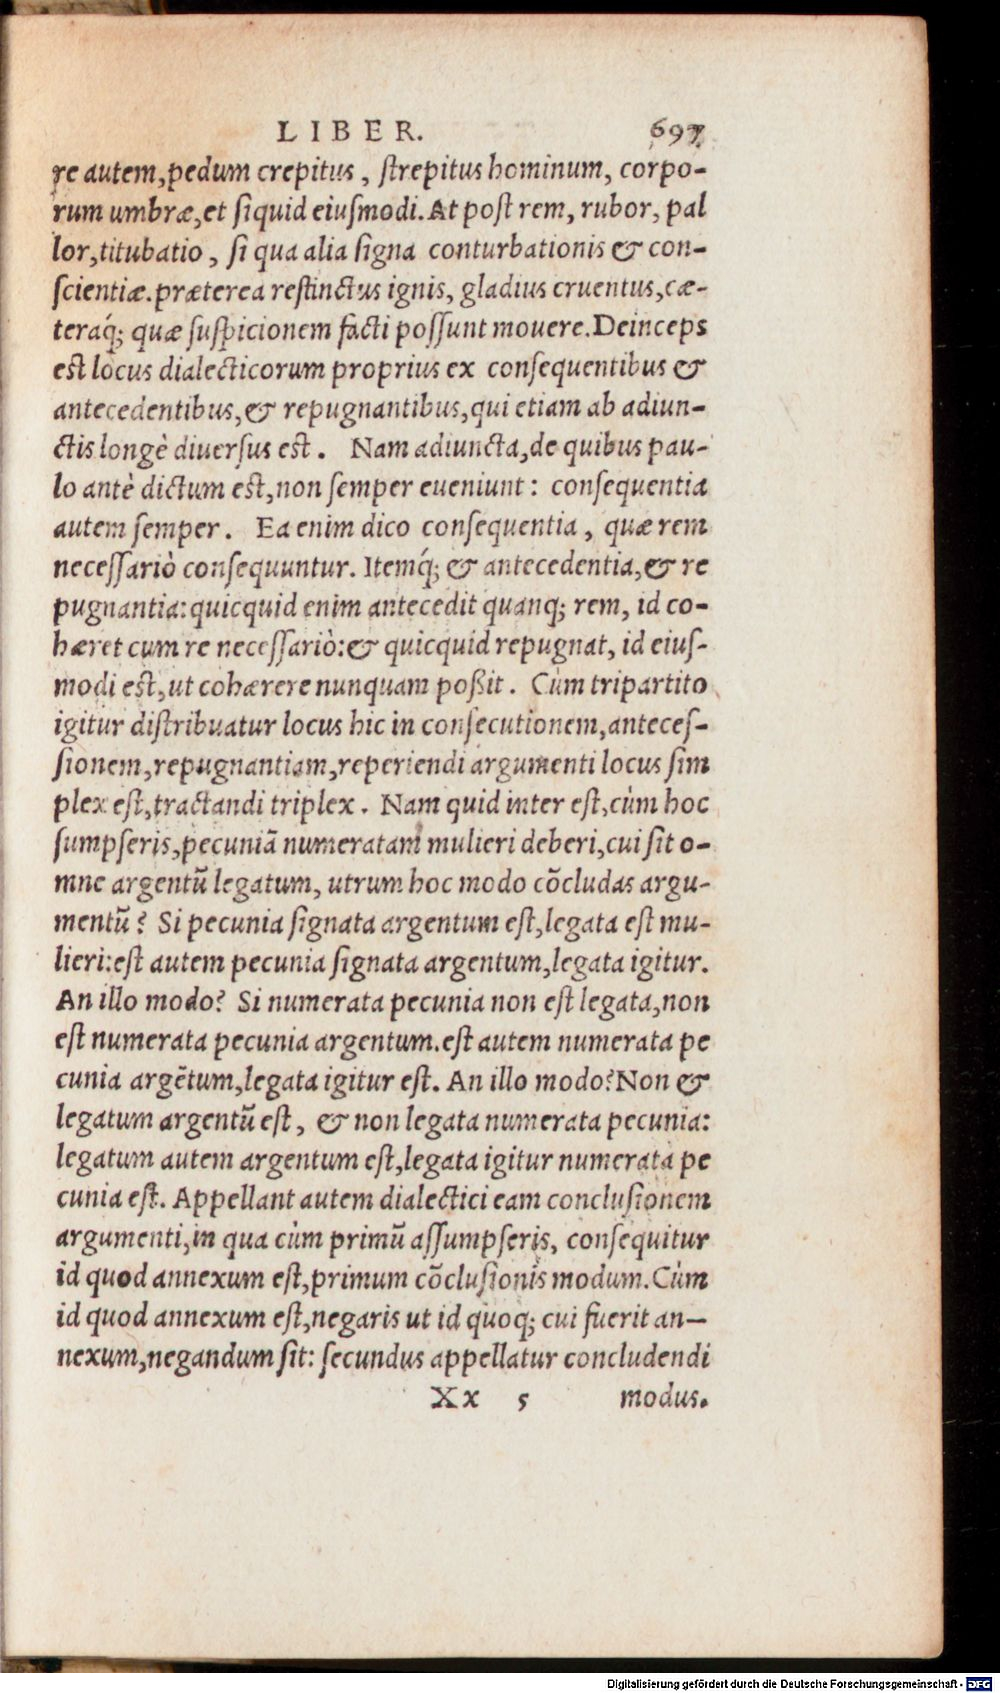 LIBER. 697
re autem, pedum crepitus, strepitus hominum, corpo-
rum umbræ, et siquid eiusmodi. At post rem, rubor, pal
lor, titubatio, si qua alia signa conturbationis & con-
scientiæ. præterea restinctus ignis, gladius cruentus, cæ-
teraq́; quæ suspicionem facti possunt mouere. Deinceps
est locus dialecticorum proprius ex consequentibus &
antecedentibus, & repugnantibus, qui etiam ab adiun-
ctis longè diuersus est. Nam adiuncta, de quibus pau-
lo antè dictum est, non semper eueniunt: consequentia
autem semper. Ea enim dico consequentia, quæ rem
necessariò consequuntur. Itemq́; & antecedentia, & re
pugnantia: quicquid enim antecedit quanq; rem, id co-
hæret cum re necessariò: & quicquid repugnat, id eius-
modi est, ut cohærere nunquam poßit. Cùm tripartito
igitur distribuatur locus hic in consecutionem, anteces-
sionem, repugnantiam, reperiendi argumenti locus sim
plex est, tractandi triplex. Nam quid inter est, cùm hoc
sumpseris, pecuniã numeratam mulieri deberi, cui sit o-
mne argentũ legatum, utrum hoc modo cõcludas argu-
mentũ? Si pecunia signata argentum est, legata est mu-
lieri: est autem pecunia signata argentum, legata igitur.
An illo modo? Si numerata pecunia non est legata, non
est numerata pecunia argentum. est autem numerata pe
cunia argẽtum, legata igitur est. An illo modo? Non &
legatum argentũ est, & non legata numerata pecunia:
legatum autem argentum est, legata igitur numerata pe
cunia est. Appellant autem dialectici eam conclusionem
argumenti, in qua cùm primũ assumpseris, consequitur
id quod annexum est, primum cõclusionis modum. Cùm
id quod annexum est, negaris ut id quoq; cui fuerit an-
nexum, negandum sit: secundus appellatur concludendi
Xx 5 modus.
Digitalisierung gefördert durch die Deutsche Forschungsgemeinschaft - DFG